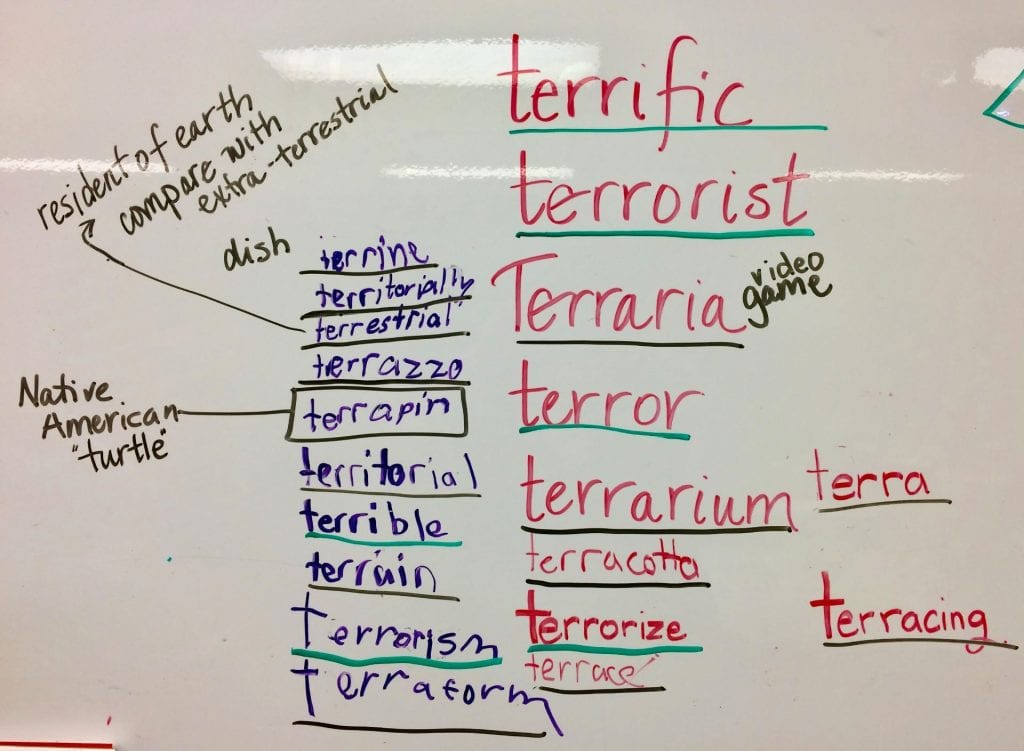 resident of earth
compare with
extra-terrestrial
dish
terrine
territorially
terrestrial
terrazzo
Native
American
"turtle"
terrapin
territorial
terrible
terrain
terrorism
terraform
terrific
terrorist
Terraria
video
game
terror
terrarium
terracotta
terrorize
terrace
terra
terracing